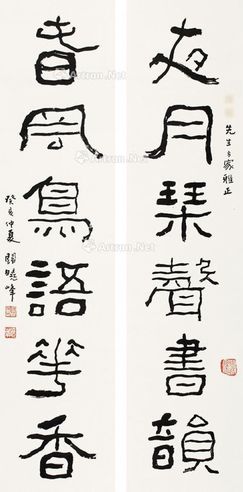 夜月琴聲書韻
先生方家雅正
春風鳥語華香
癸亥仲夏關曉峰
Artron.Net